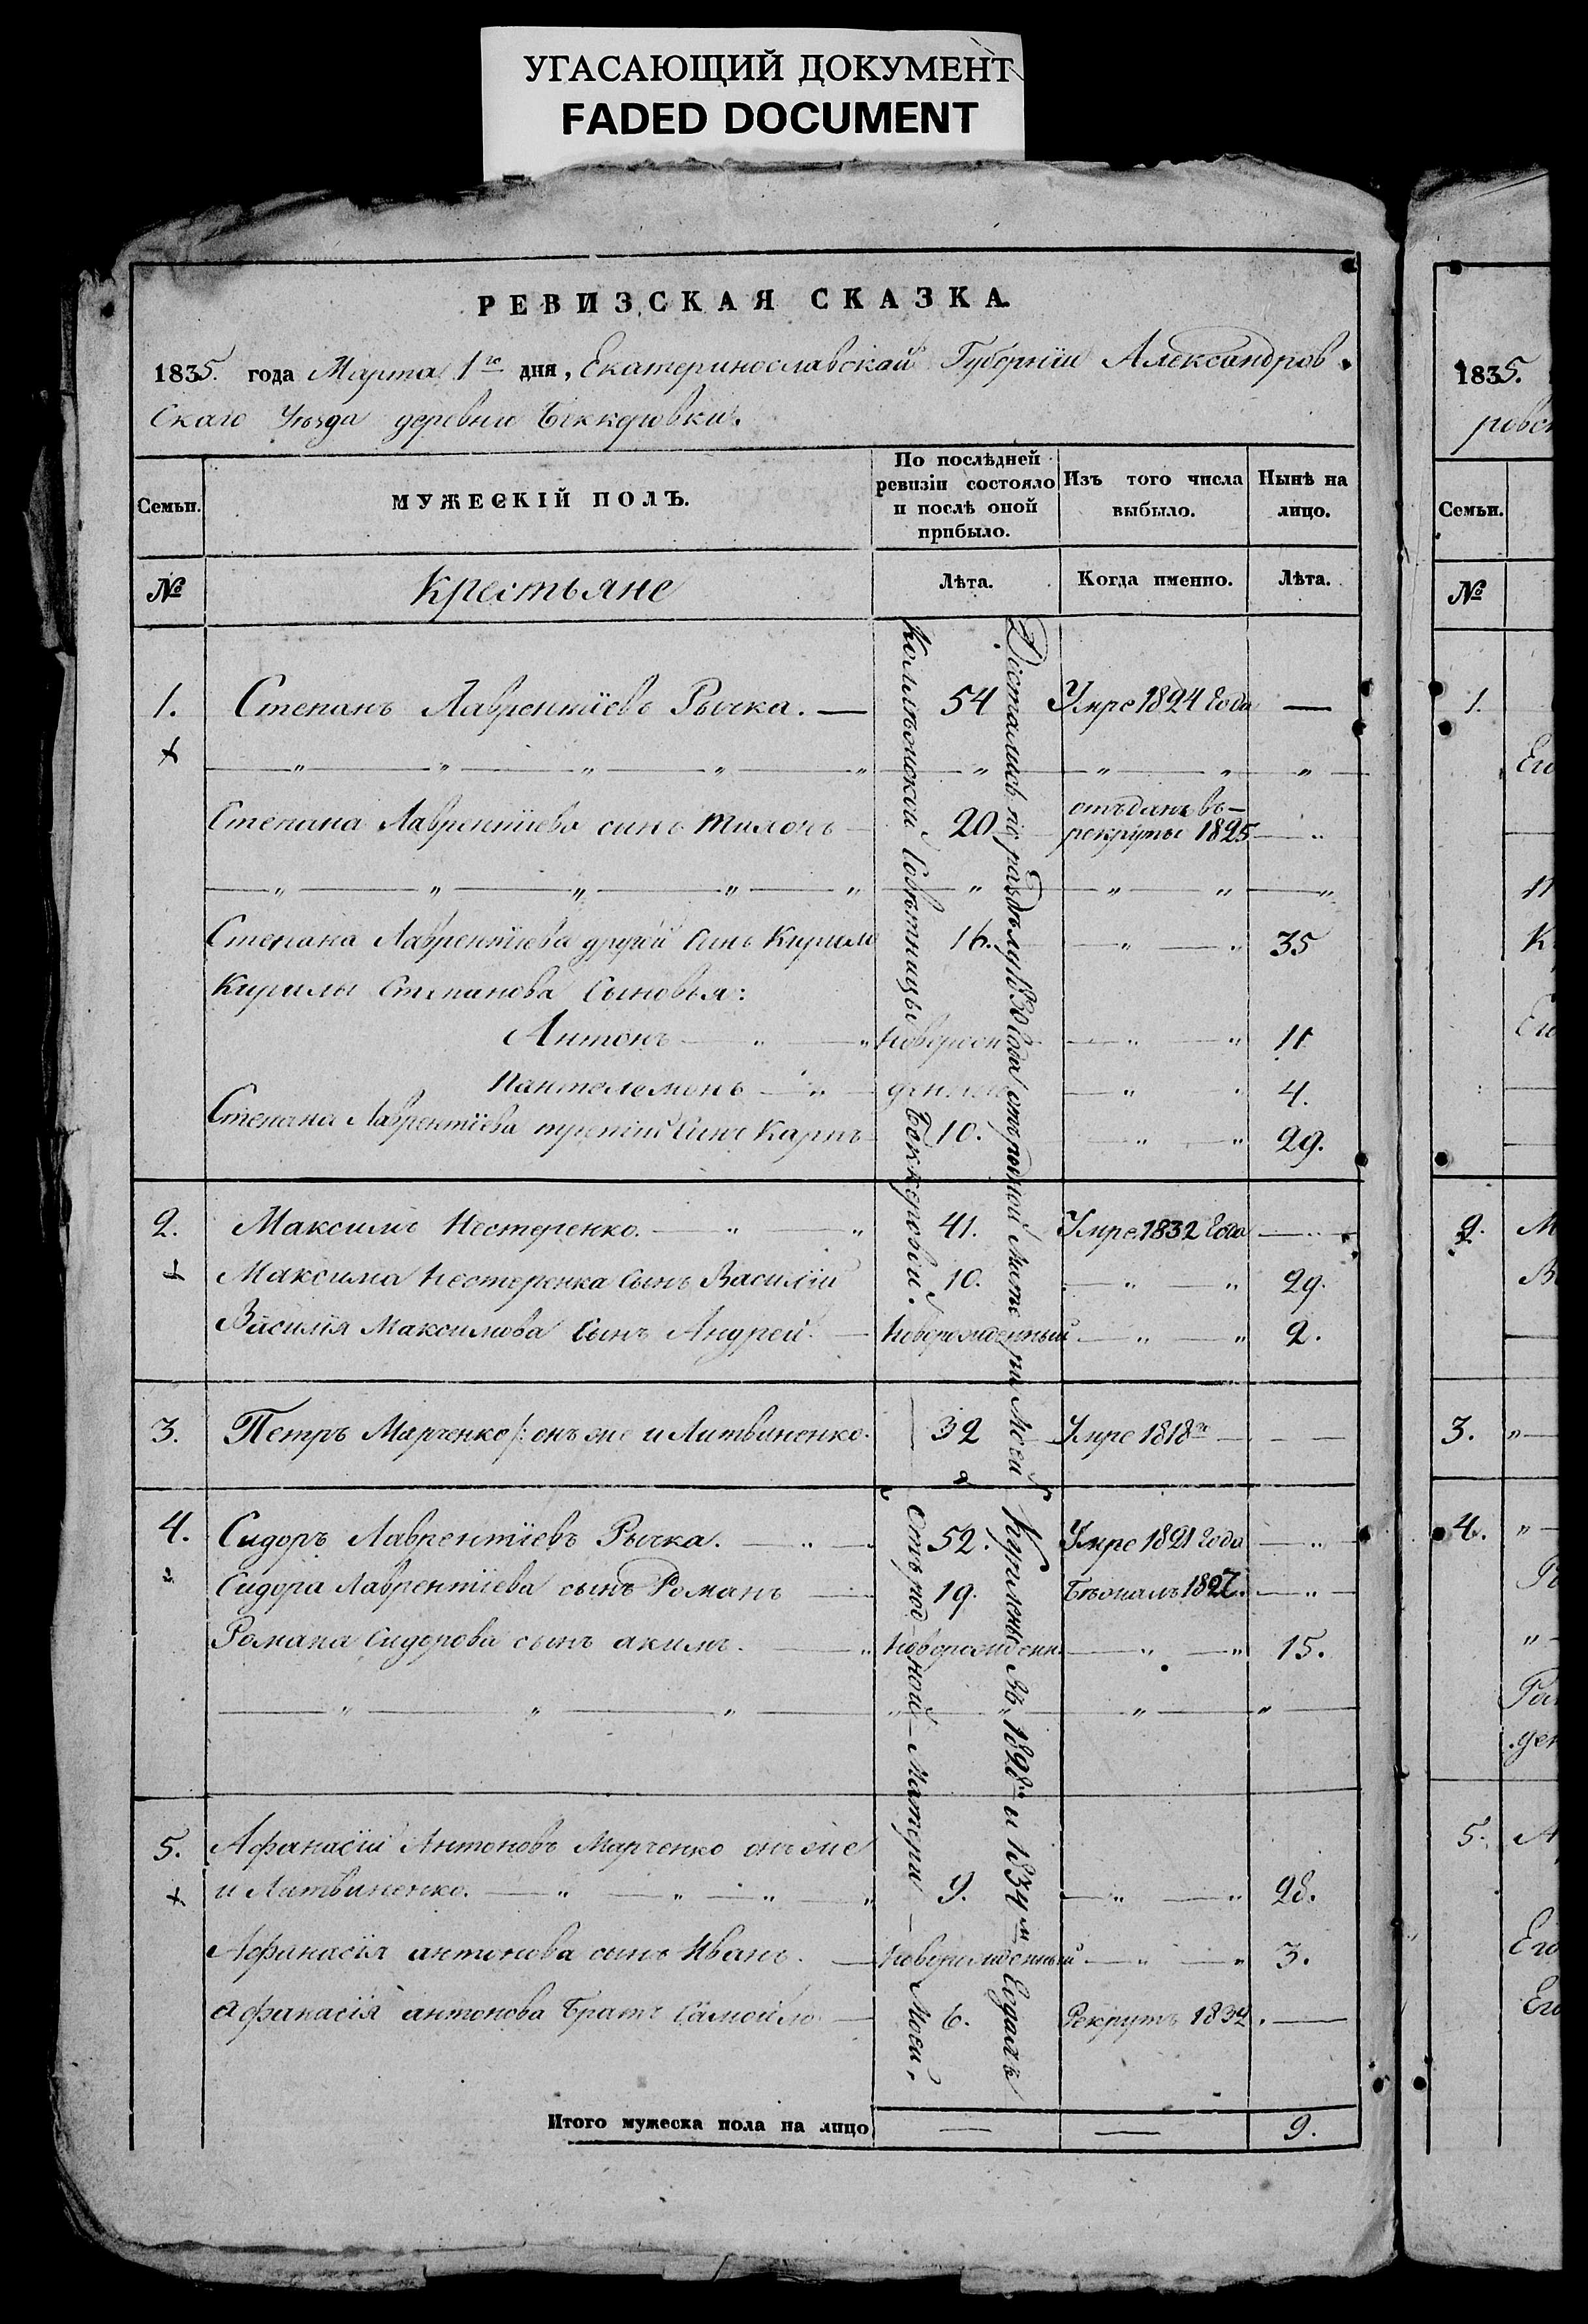 УГАСАЮЩИЙ ДОКУМЕНТ
FADED DOCUMENT
РЕВИЗСКАЯ СКАЗКА.
1835. года Марта 1го дня, Екатеринославской Губернiи Александров
скаго Уѣзда деревни Беккеровки.
Семьи.
МУЖЕСКІЙ ПОЛЪ.
По послѣдней
ревизіи состояло
и послѣ оной
прибыло.
Изъ того числа
выбыло.
Нынѣ на
лицо.
№
Крестьяне
Лѣта.
Когда именно.
Лѣта.
1. Степанъ Лаврентіевъ Рычка. — 54 Умре 1824 Года —
Степана Лаврентіева сынъ 20 отъданъ въ
рекруты 1825 — "
Степана Лаврентіева другой Сынъ Кирило 16. — " — " 35
Кирилы Степанова Сыновья:
Антонъ — " — " новорожен — " — " 11
Пантелемонъ — " — — " " 4.
Степана Лаврентіева третій Сынъ Карпъ 10. — " — " 29.
2. Максимъ Нестеренко. — " — " 41. Умре 1832 Года — " —
Максима Нестеренка Сынъ Василій 10. — " — " 29.
Василія Максимова Сынъ Андрей — новорожденный — " — " 2.
3. Петръ Марченко /: онъ же и Литвиненко. 32 Умре 1818го — — —
4. Сидоръ Лаврентіевъ Рычка. — " — 52. Умре 1821 Года — " —
Сидора Лаврентіева сынъ Романъ — 19. Бѣжалъ 1827. — " —
Романа Сидорова сынъ акимъ. — " новорожденн. — " — " 15.
5. Афанасій Антоновъ Марченко онъ же
и Литвиненко. — " — " — " " 9. — " — " 28.
Афанасія антонова сынъ Иванъ. — новорожденный — " — " 3.
афанасія антонова братъ Самойло — 6. Рекрутъ 1834. —
Итого мужеска пола на лицо — — 9.
Коллежской Совѣтницы Беккеровой.
Достались по раздѣлу 1830 Года отъ родной Матери Моей
отъ родной Матери Моей.
1828м и 1834м Годахъ
1835.
Семьи.
№
1.
2.
3.
4.
5.